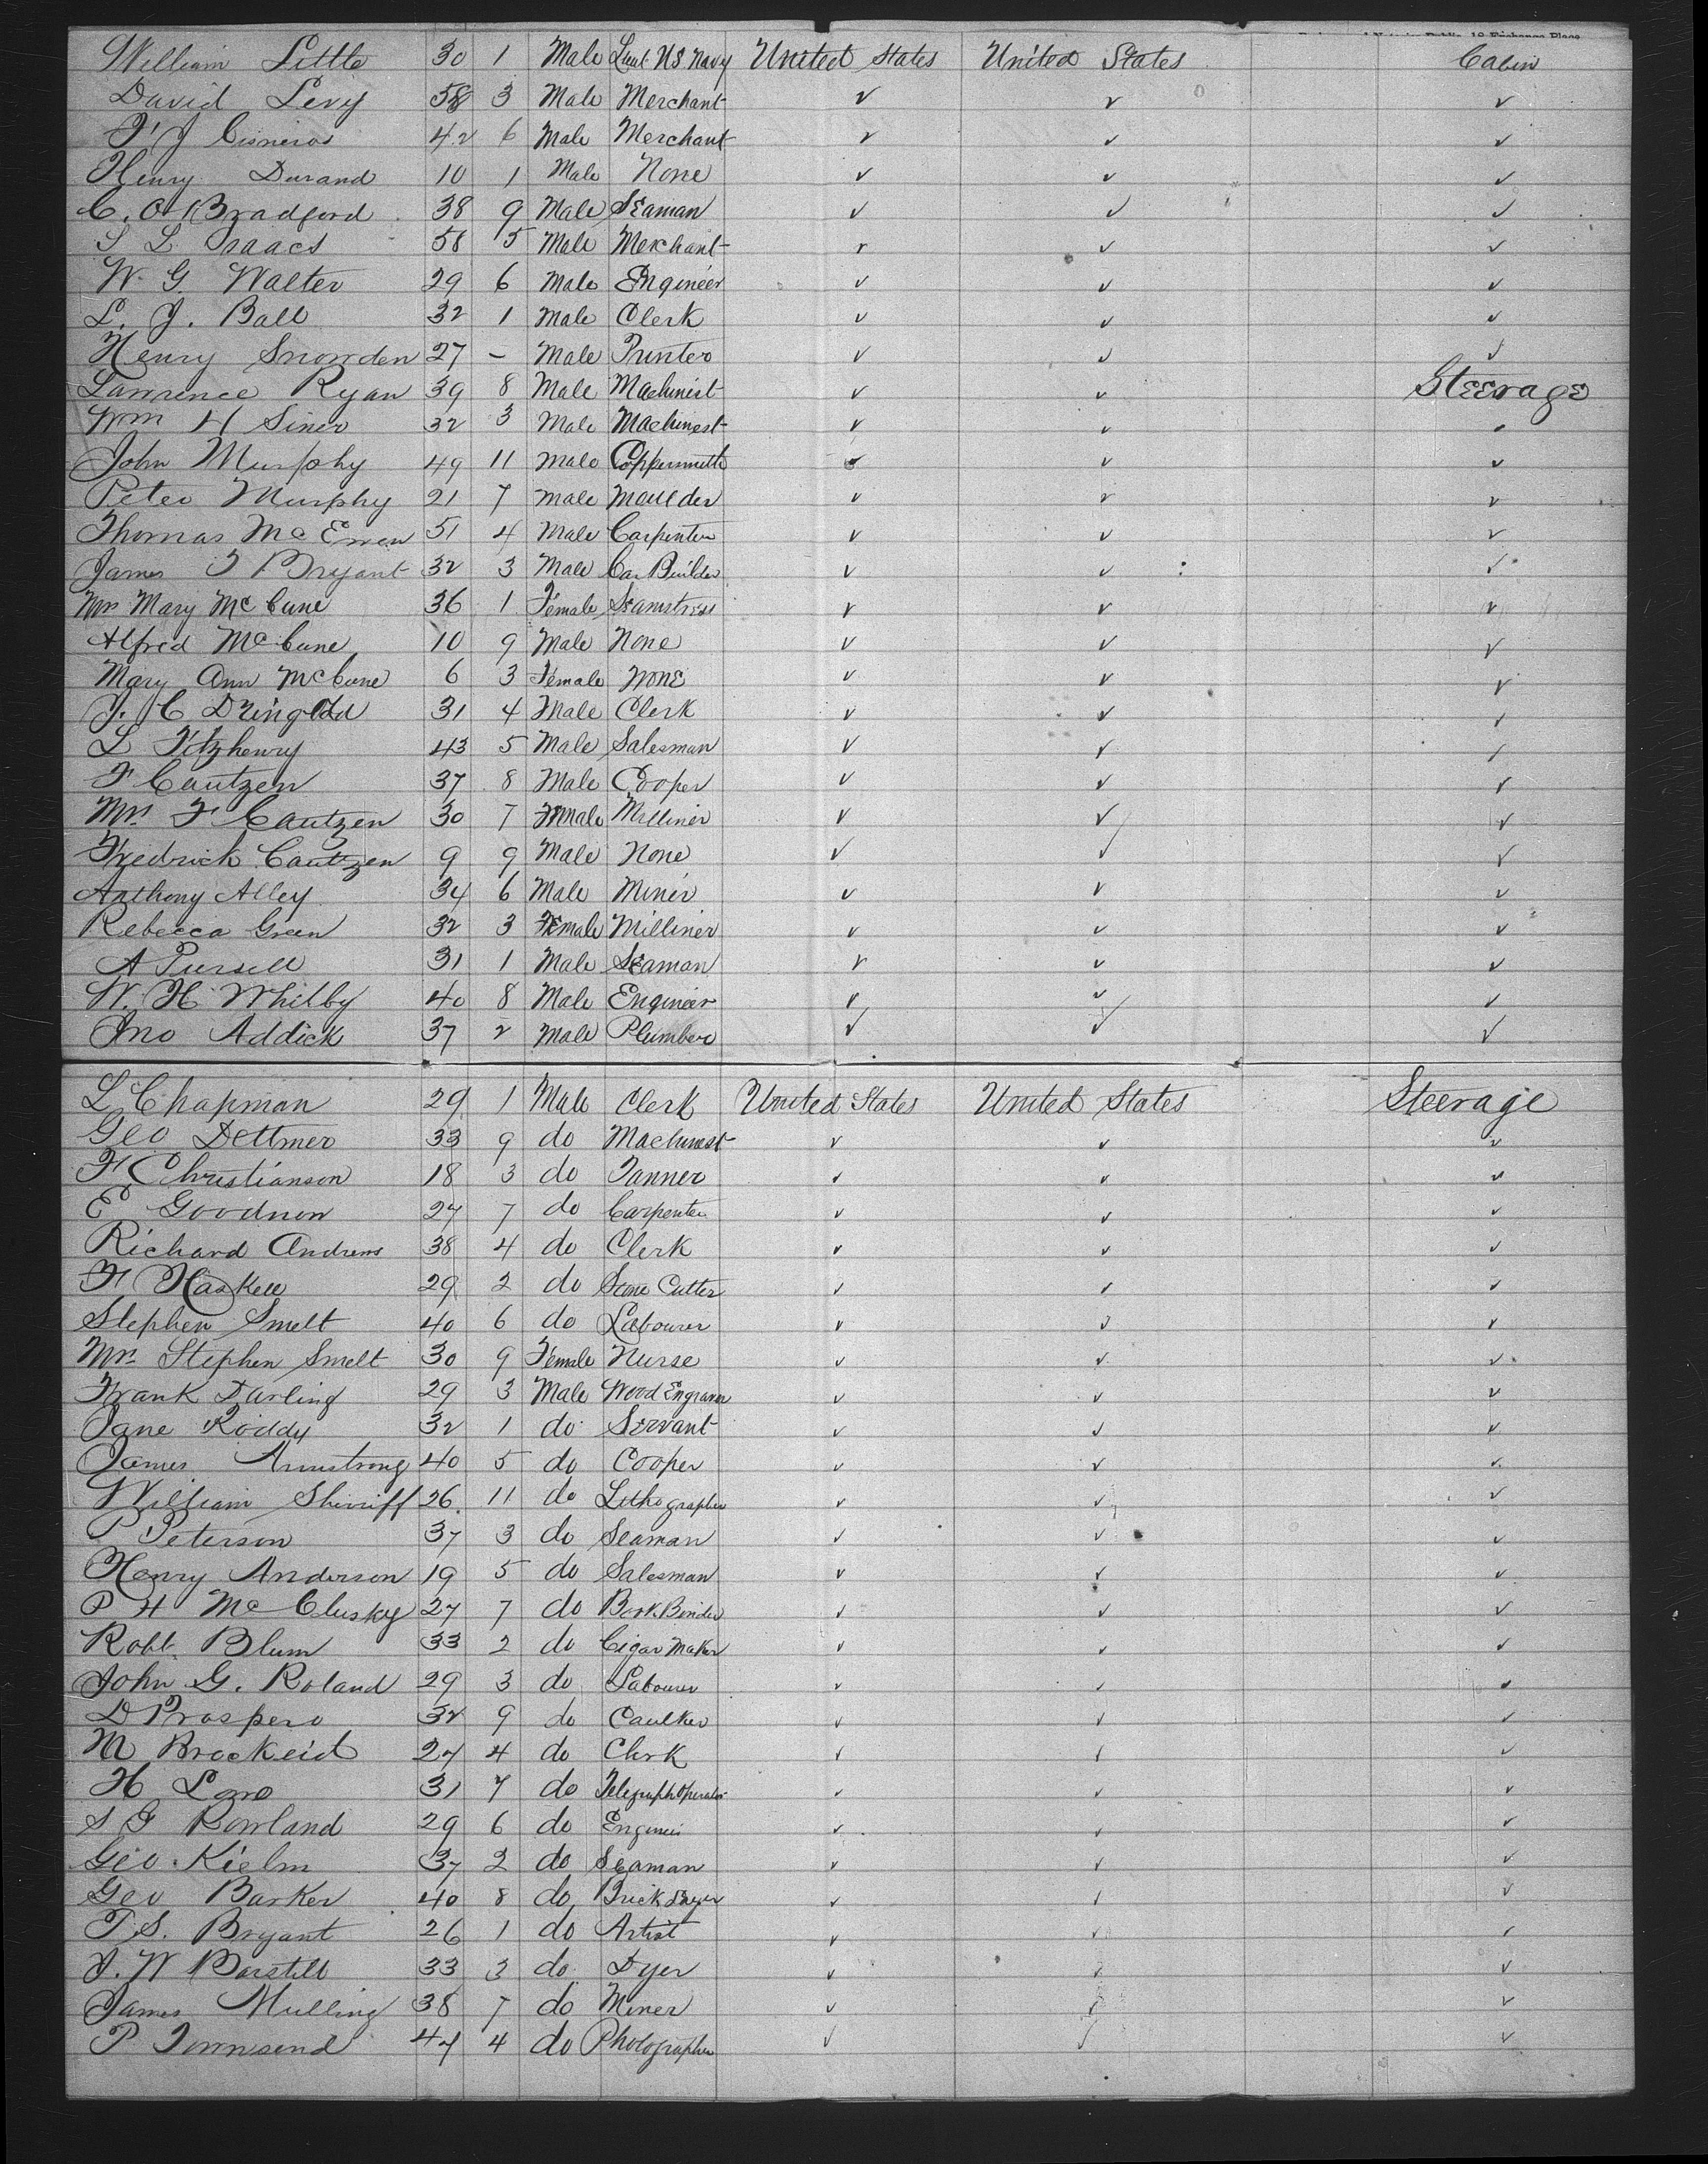 William Little 30 1 Male Lieut US Navy United States United States Cabin
David Levy 58 3 Male Merchant ✓ ✓ ✓
F J Cisneros 42 6 Male Merchant ✓ ✓ ✓
Henry Durand 10 1 Male None ✓ ✓ ✓
C. O. Bradford 38 9 Male Seaman ✓ ✓ ✓
S L Isaacs 58 5 Male Merchant ✓ ✓ ✓
W. G. Walter 29 6 Male Engineer ✓ ✓ ✓
L. J. Ball 32 1 Male Clerk ✓ ✓ ✓
Henry Snowden 27 – Male Printer ✓ ✓ ✓
Lawrence Ryan 39 8 Male Machinist ✓ ✓ Steerage
Wm H Siner 32 3 Male Machinest ✓ ✓ ✓
John Murphy 49 11 Male Coppersmith ✓ ✓ ✓
Peter Murphy 21 7 Male Moulder ✓ ✓ ✓
Thomas McEwen 51 4 Male Carpenter ✓ ✓ ✓
James T Bryant 32 3 Male Car Builder ✓ ✓ ✓
Mrs Mary McCune 36 1 Female Seamstress ✓ ✓ ✓
Alfred McCune 10 9 Male None ✓ ✓ ✓
Mary Ann McCune 6 3 Female None ✓ ✓ ✓
J. C 31 4 Male Clerk ✓ ✓ ✓
L Fitzhenry 43 5 Male Salesman ✓ ✓ ✓
F Cautzen 37 8 Male Cooper ✓ ✓ ✓
Mrs F Cautzen 30 7 Female Milliner ✓ ✓ ✓
Fredrick Cautzen 9 9 Male None ✓ ✓ ✓
Anthony Alley 34 6 Male Miner ✓ ✓ ✓
Rebecca Green 32 3 Female Milliner ✓ ✓ ✓
A Pursell 31 1 Male Seaman ✓ ✓ ✓
W. H. Whilby 40 8 Male Engineer ✓ ✓ ✓
Jno Addick 37 2 Male Plumber ✓ ✓ ✓
L Chapman 29 1 Male Clerk United States United States Steerage
Geo Dettmer 33 9 do Machinest ✓ ✓ ✓
F Christianson 18 3 do Tanner ✓ ✓ ✓
E Goodnow 27 7 do Carpenter ✓ ✓ ✓
Richard Andrews 38 4 do Clerk ✓ ✓ ✓
F Haskell 29 2 do Stone Cutter ✓ ✓ ✓
Stephen Smelt 40 6 do Labourer ✓ ✓ ✓
Mrs Stephen Smelt 30 9 Female Nurse ✓ ✓ ✓
Frank Darling 29 3 Male Wood Engraver ✓ ✓ ✓
Jane Roddy 32 1 do Servant ✓ ✓ ✓
James Armstrong 40 5 do Cooper ✓ ✓ ✓
William Shirriff 26 11 do Lithographer ✓ ✓ ✓
P Peterson 37 3 do Seaman ✓ ✓ ✓
Henry Anderson 19 5 do Salesman ✓ ✓ ✓
P H McClusky 27 7 do Book Binder ✓ ✓ ✓
Robt. Blum 33 2 do Cigar Maker ✓ ✓ ✓
John G. Roland 29 3 do Labourer ✓ ✓ ✓
D Prospero 32 9 do Caulker ✓ ✓ ✓
M Brockeid 27 4 do Clerk ✓ ✓ ✓
H 31 7 do Telegraph Operator ✓ ✓ ✓
S G Rowland 29 6 do Engineer ✓ ✓ ✓
Geo. Kielm 37 2 do Seaman ✓ ✓ ✓
Geo Barker 40 8 do Brick Layer ✓ ✓ ✓
T. S. Bryant 26 1 do Artist ✓ ✓ ✓
J. W Barstill 33 3 do Dyer ✓ ✓ ✓
James Mulling 38 7 do Miner ✓ ✓ ✓
P Townsend 47 4 do Photographer ✓ ✓ ✓